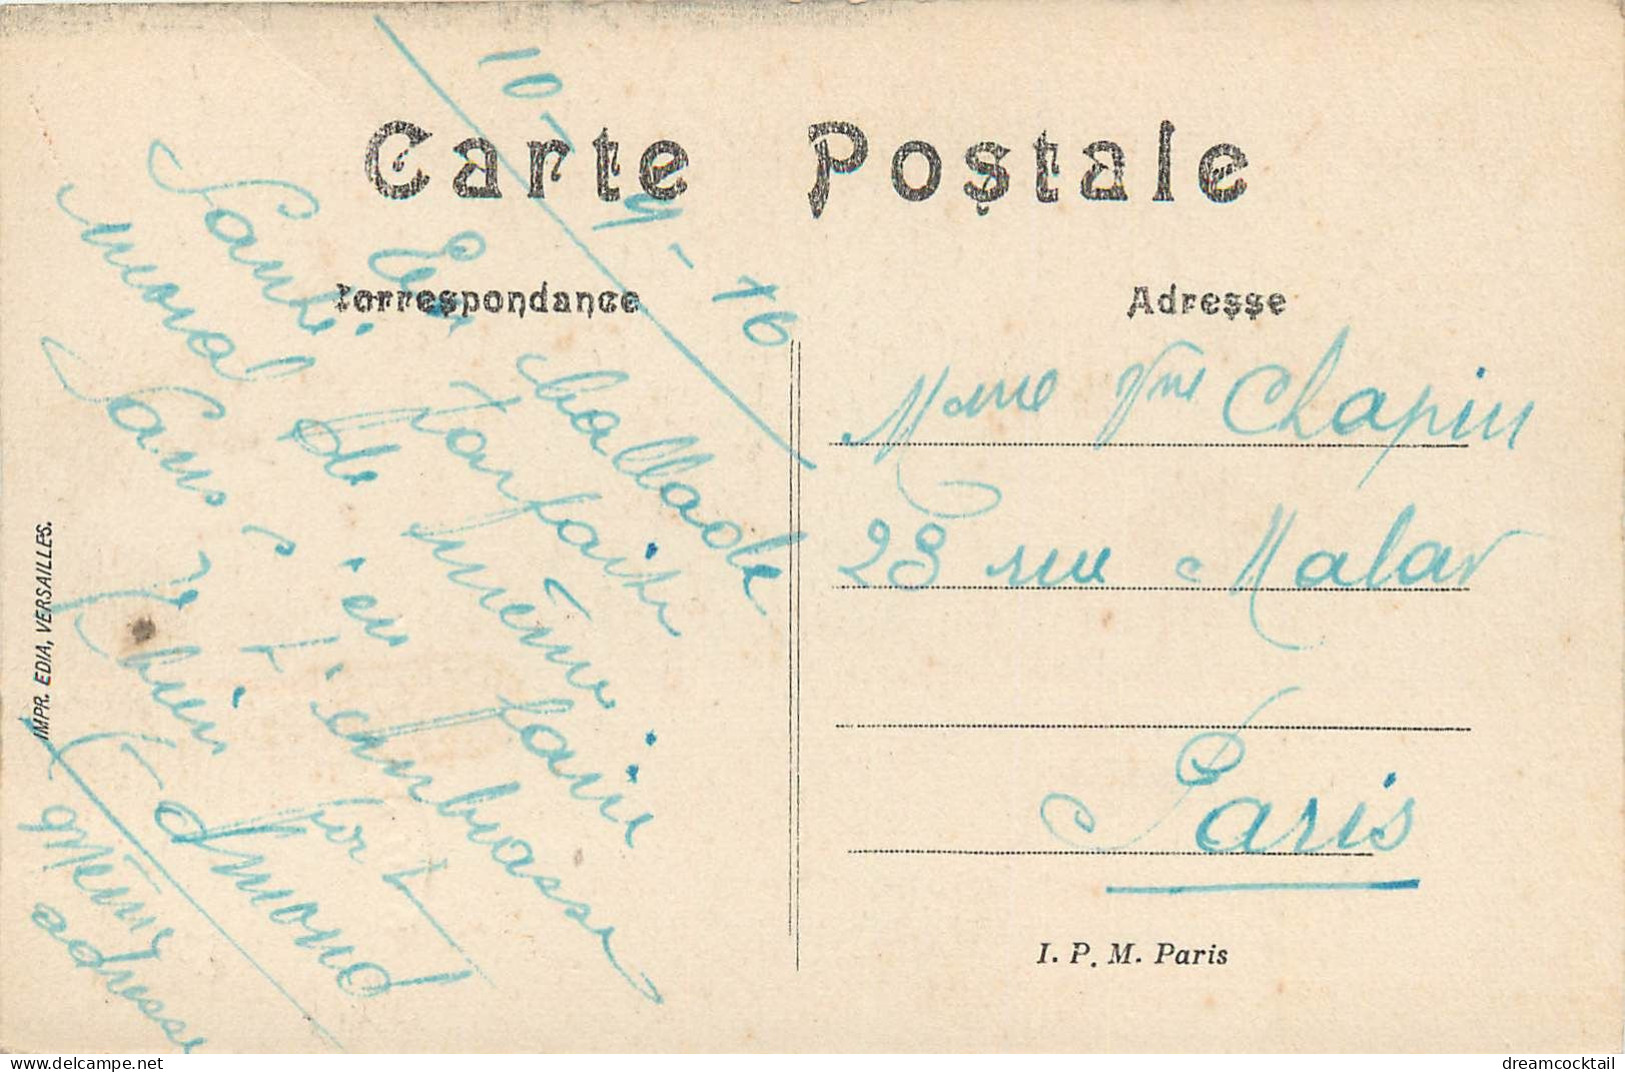 Carte Postale
Correspondance
Adresse
10-9-16
En ballade
Santé parfaite
moral de même
Sans s'en faire
Je t'embrasse
bien fort
Edmond
même
adresse
Mme Vve Chapin
28 rue Malar
Paris
I. P. M. Paris
IMPR. EDIA, VERSAILLES.
delcampe.net
dreamcocktail